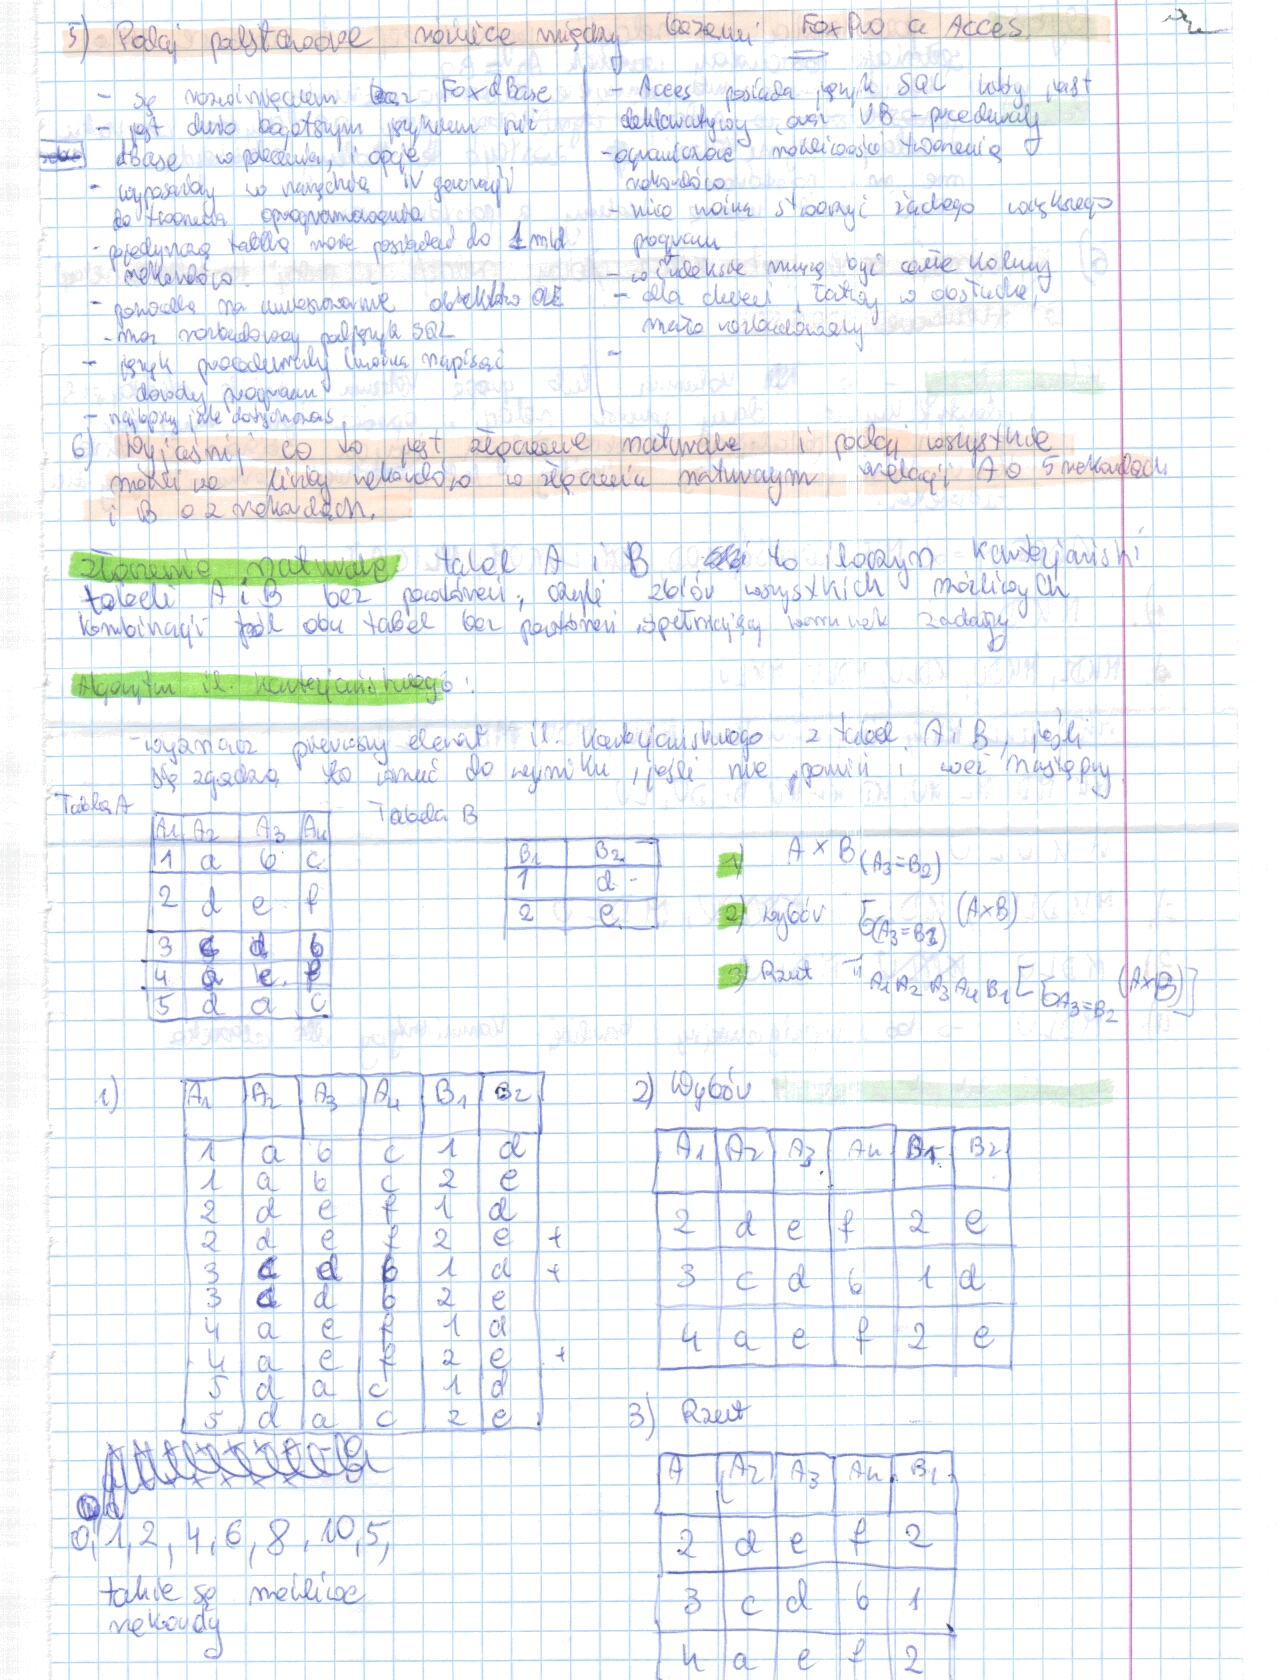 5) Podaj podstawowe różnice między bazami FoxPro a Acces.
- są rozwinięciem FoxdBase
- jest dużo bogatszym językiem niż
dBase w polecenia i opcje
- wyposażony w narzędzia IV generacji
do tworzenia oprogramowania
- pojedyncza tabela może posiadać do 1 mld
rekordów.
- pozwala na umieszczanie obiektów OLE
- ma rozbudowany podjęzyk SQL
- język proceduralny (można napisać
dowolny program
- najlepszy jak dotychczas,
- Acces posiada język SQL który jest
deklaratywny oraz VB - proceduralny
- ograniczone możliwości tworzenia
rekordów
- nie można stworzyć żadnego większego
program
- w indeksie muszą być całe kolumny
- dla dzieci, łatwy w obsłudze,
mało rozbudowany
-
6) Wyjaśnij co to jest złączenie naturalne i podaj wszystkie
możliwe liczby rekordów w złączeniu naturalnym relacji A o 5 rekordach
i B o 2 rekordach.
złączenie naturalne tabel A i B to iloczyn kartezjański
tabeli A i B bez powtórzeń, czyli zbiór wszystkich możliwych
kombinacji pól obu tabel bez powtórzeń, spełniający warunek zadany
Algorytm il. kartezjańskiego:
- wyznacz pierwszy element il. kartezjańskiego z tabel A i B, jeśli
się zgadza to wrzuć do wyniku, jeśli nie, pomiń i weź następny
Tabela A
A1 A2 A3 A4
1 a b c
2 d e f
3 c d b
4 a e f
5 d a c
Tabela B
B1 B2
1 d
2 e
1) A × B (A3=B2)
2) wybór σ(A3=B2) (A×B)
3) Rzut π A1 A2 A3 A4 B1 [σA3=B2 (A×B)]
1)
A1 A2 A3 A4 B1 B2
1 a b c 1 d
1 a b c 2 e
2 d e f 1 d
2 d e f 2 e +
3 c d b 1 d +
3 c d b 2 e
4 a e f 1 d
4 a e f 2 e +
5 d a c 1 d
5 d a c 2 e
2) Wybór
A1 A2 A3 A4 B1 B2
2 d e f 2 e
3 c d b 1 d
4 a e f 2 e
3) Rzut
A A2 A3 A4 B1
2 d e f 2
3 c d b 1
4 a e f 2
0, 1, 2, 4, 6, 8, 10, 5,
takie są możliwe
rekordy